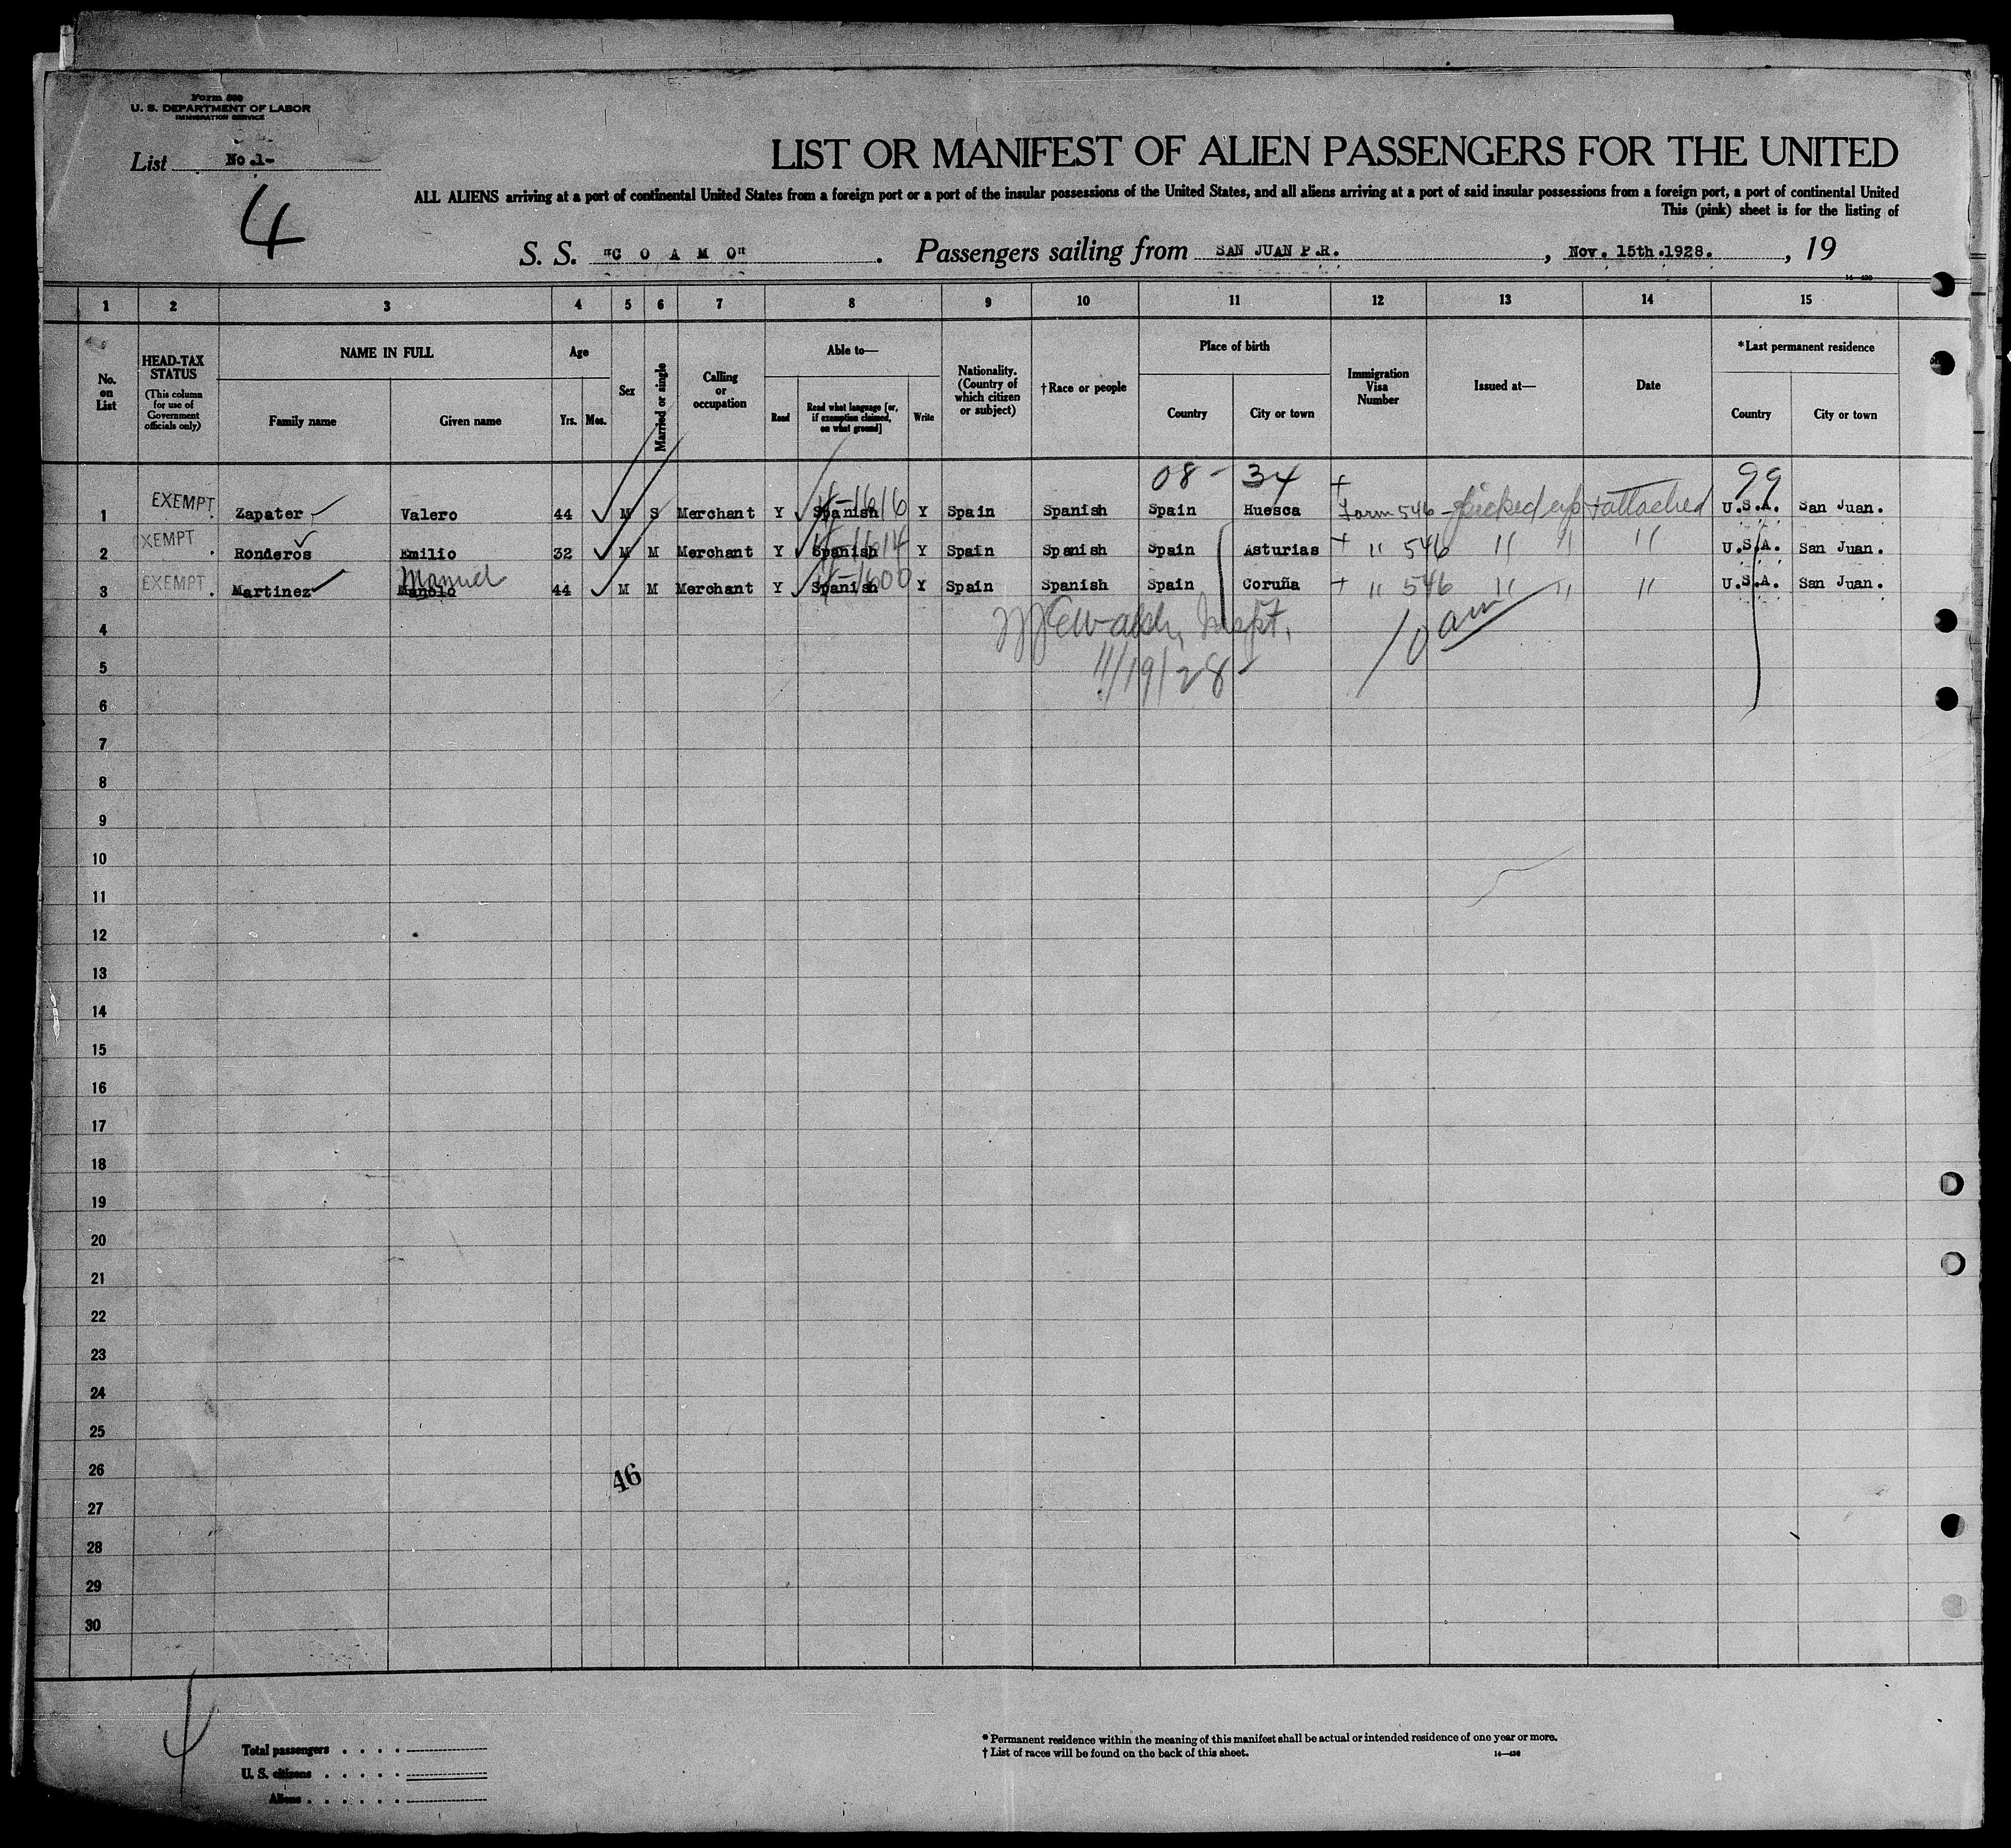 Form 500
U. S. DEPARTMENT OF LABOR
IMMIGRATION SERVICE
List No.1-
4
LIST OR MANIFEST OF ALIEN PASSENGERS FOR THE UNITED
ALL ALIENS arriving at a port of continental United States from a foreign port or a port of the insular possessions of the United States, and all aliens arriving at a port of said insular possessions from a foreign port, a port of continental United
This (pink) sheet is for the listing of
S. S. "C O A M O" . Passengers sailing from SAN JUAN P.R. , Nov. 15th.1928. , 19
1 2 3 4 5 6 7 8 9 10 11 12 13 14 15
No. on List
HEAD-TAX STATUS (This column for use of Government officials only)
NAME IN FULL
Family name Given name
Age
Yrs. Mos.
Sex
Married or single
Calling or occupation
Able to—
Read Read what language [or, if exemption claimed, on what ground] Write
Nationality. (Country of which citizen or subject)
†Race or people
Place of birth
Country City or town
Immigration Visa Number
Issued at—
Date
*Last permanent residence
Country City or town
08 - 34 99
1 EXEMPT Zapater Valero 44 M S Merchant Y Spanish 4-1616 Y Spain Spanish Spain Huesca Form 546 - picked up + attached U.S.A. San Juan.
2 EXEMPT Ronderos Emilio 32 M M Merchant Y Spanish 4-1614 Y Spain Spanish Spain Asturias " 546 " " " U.S.A. San Juan.
Manuel
3 EXEMPT Martinez Manolo 44 M M Merchant Y Spanish 4-1600 Y Spain Spanish Spain Coruña " 546 " " " U.S.A. San Juan.
4 Inspt. 10 am
5 11/19/28
6
7
8
9
10
11
12
13
14
15
16
17
18
19
20
21
22
23
24
25
26 46
27
28
29
30
4
Total passengers . . . .
U. S. citizens . . . . .
Aliens . . . . . .
*Permanent residence within the meaning of this manifest shall be actual or intended residence of one year or more.
†List of races will be found on the back of this sheet.